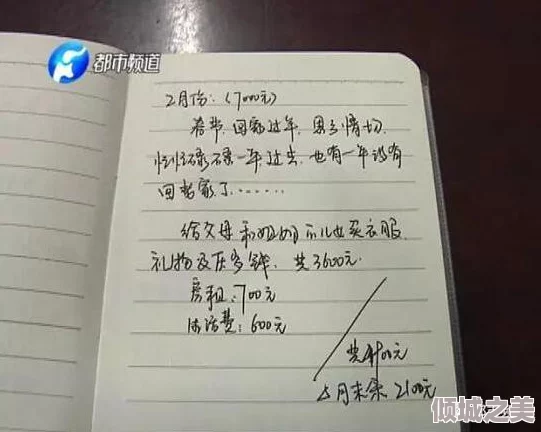 都市频道
2月份：(7000元)
春节，回家过年，思乡情切，
忙忙碌碌一年过去，也有一年没有
回老家了……
给父母和姐姐 儿 买衣服
礼物及压岁钱，共3600元.
房租：700元
生活费：600元
共4900元
月末余 2100元
倾城之美